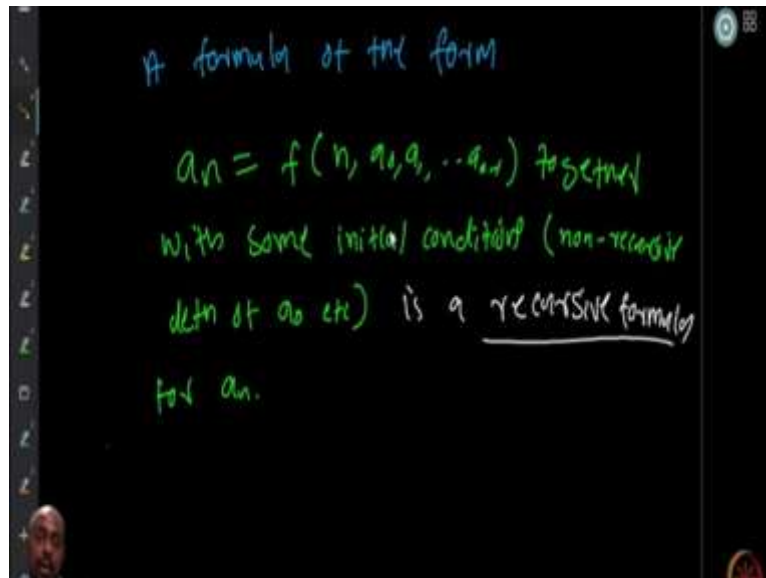 A formula of the form
an = f(n, a0, a1, ... an-1) together
with some initial conditions (non-recursive
defn of a0 etc) is a recursive formula
for an.